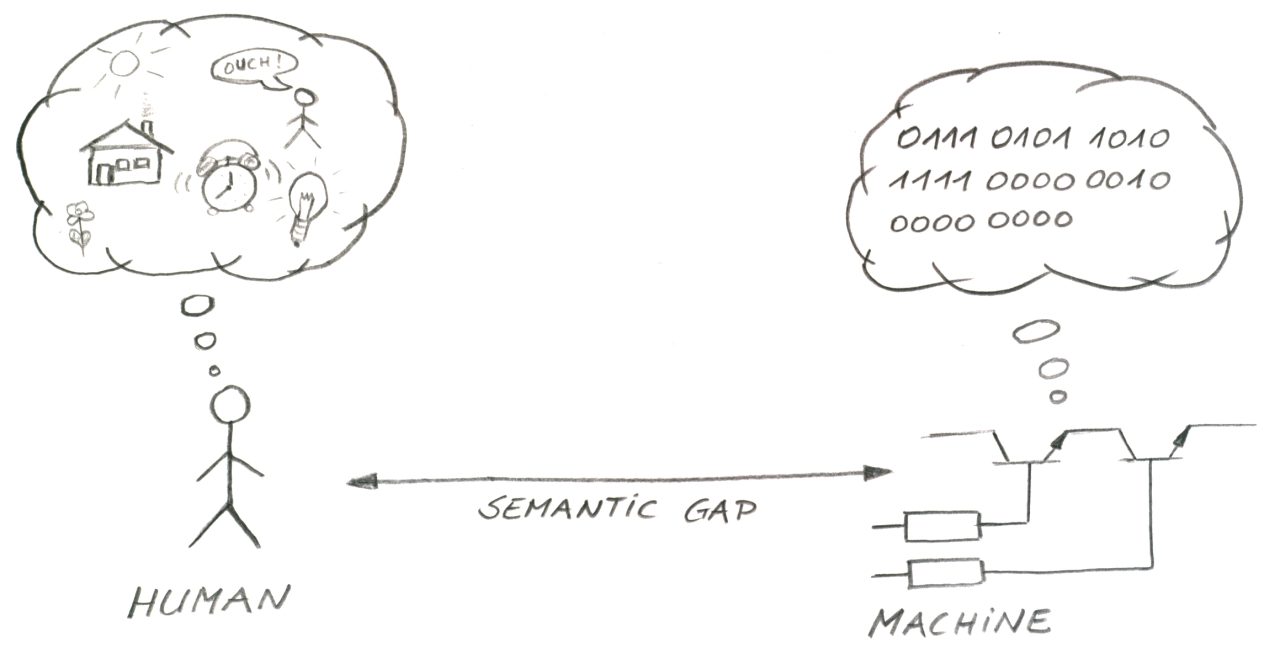 OUCH!
0111 0101 1010
1111 0000 0010
0000 0000
SEMANTIC GAP
HUMAN
MACHINE